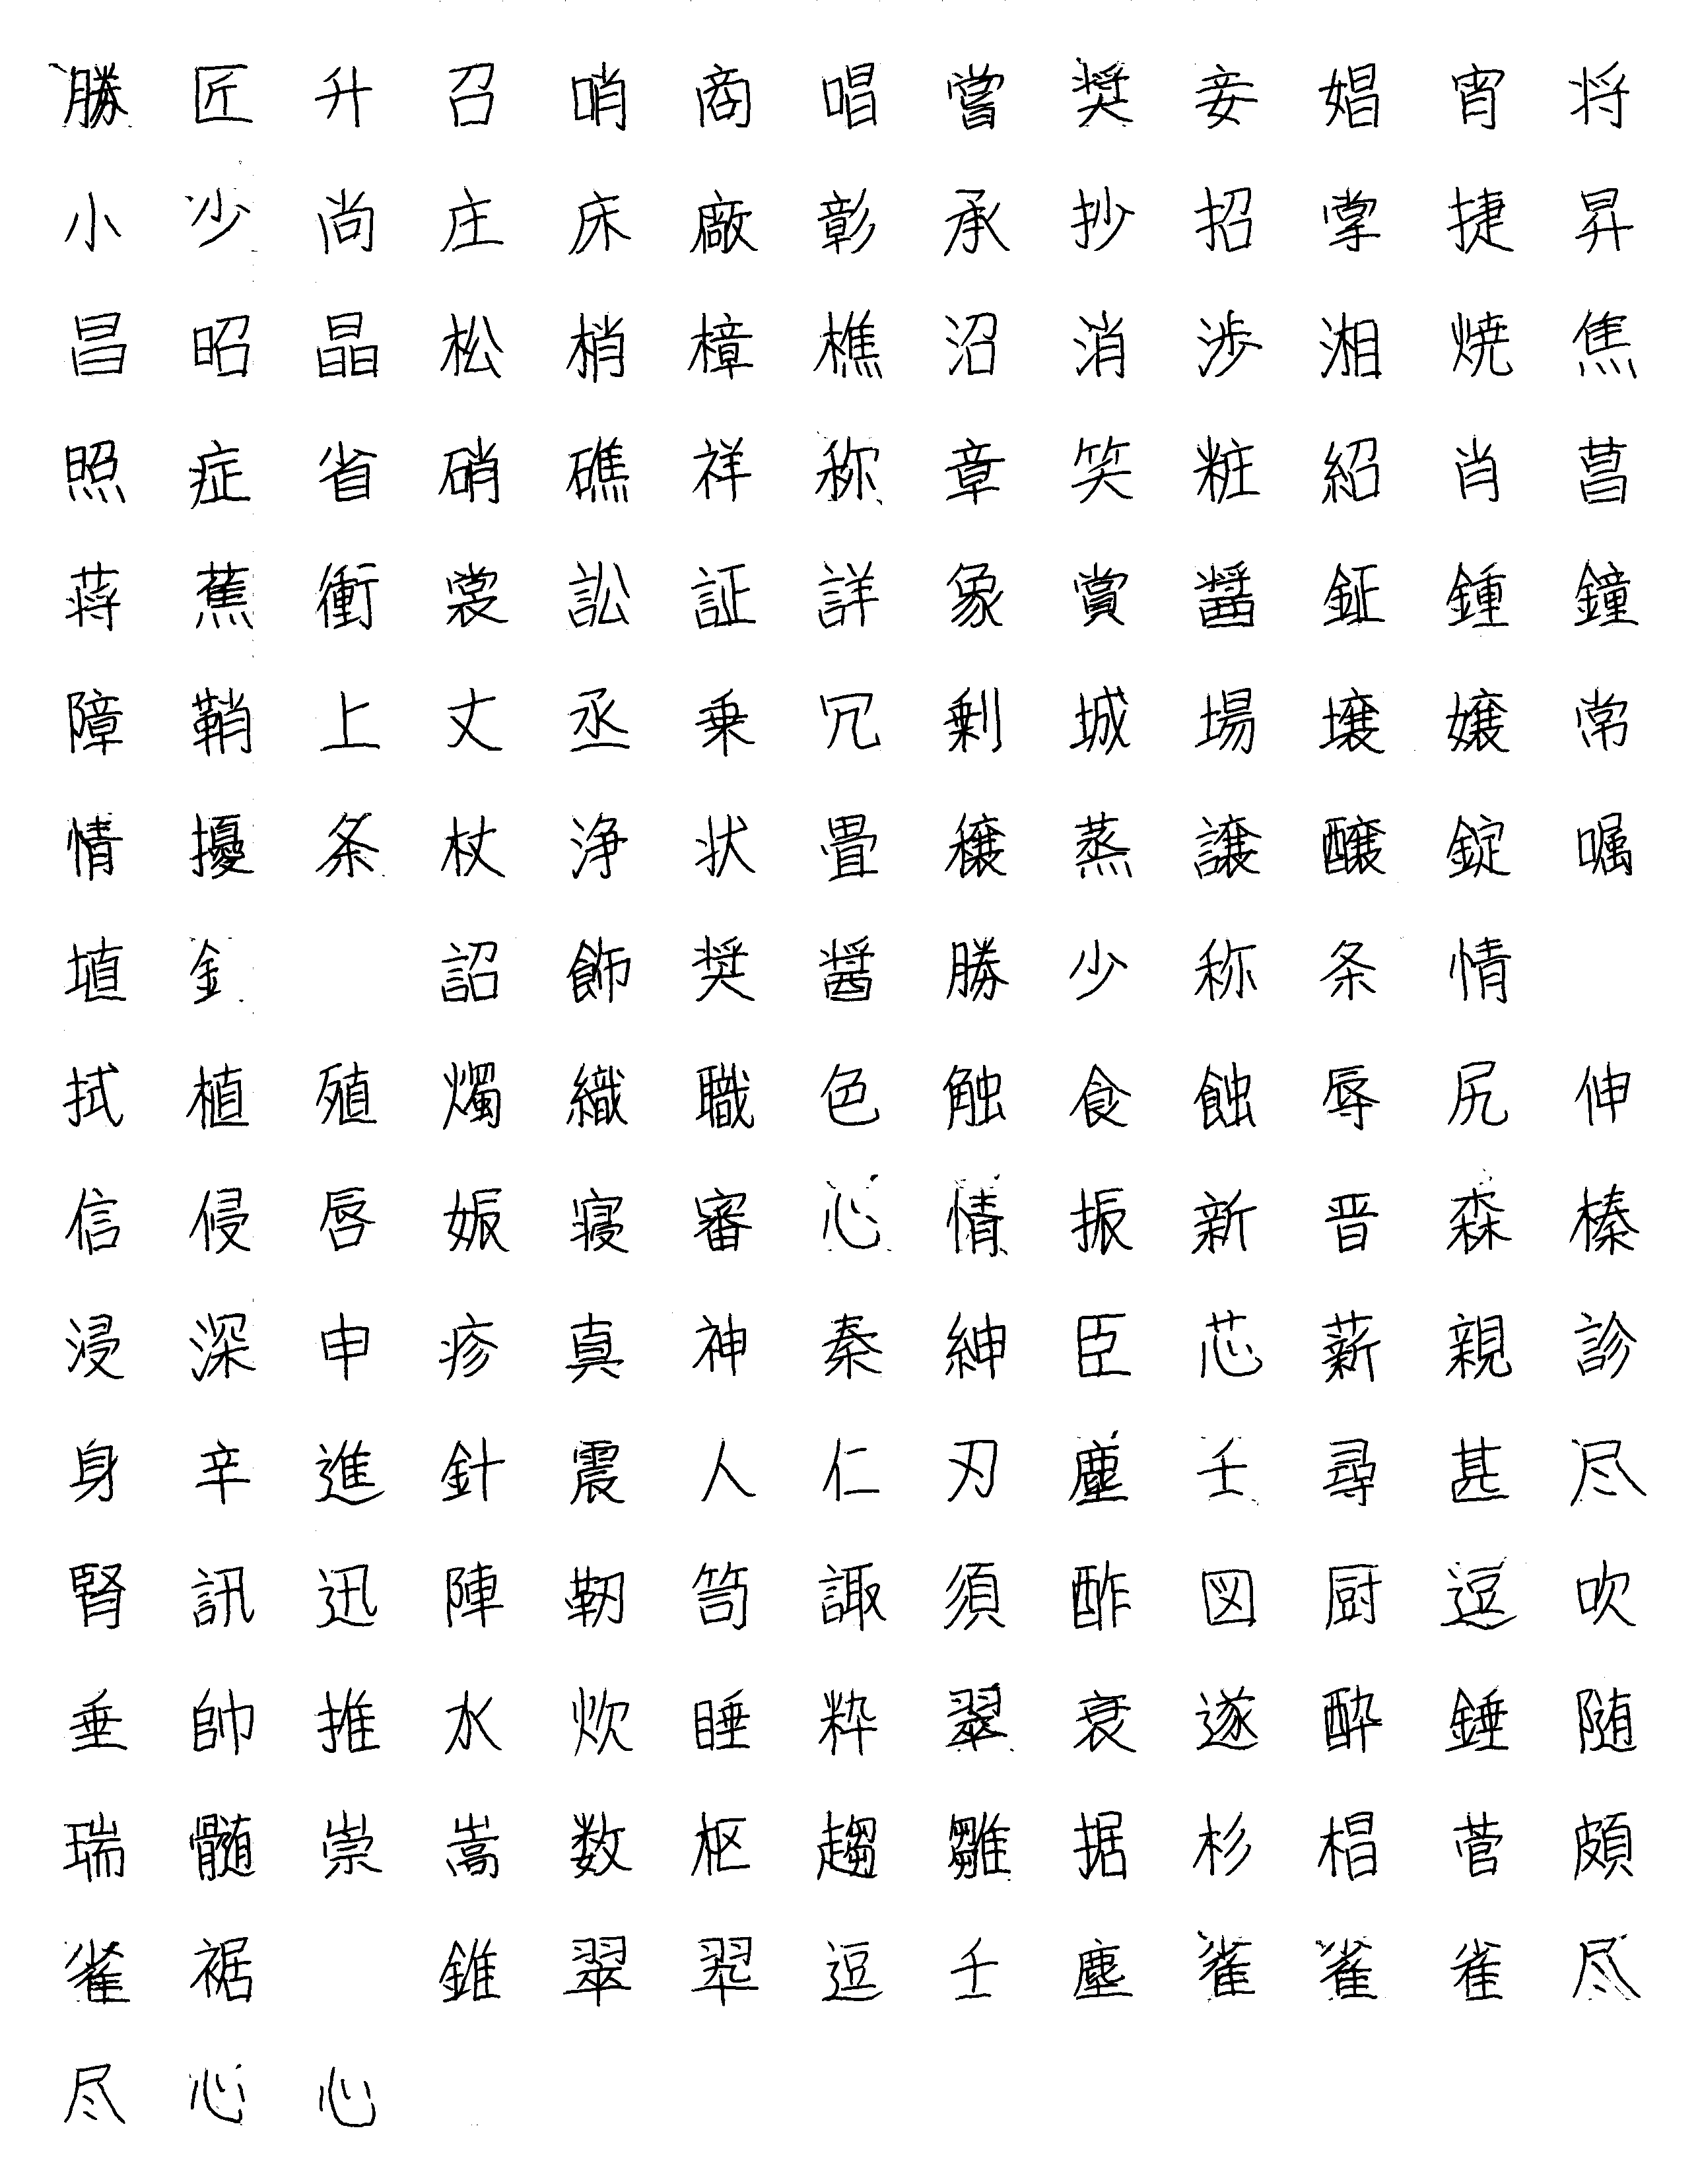 勝 匠 升 召 哨 商 唱 嘗 奨 妾 娼 宵 将
小 少 尚 庄 床 廠 彰 承 抄 招 掌 捷 昇
昌 昭 晶 松 梢 樟 樵 沼 消 渉 湘 焼 焦
照 症 省 硝 礁 祥 称 章 笑 粧 紹 肖 菖
蒋 蕉 衝 裳 訟 証 詳 象 賞 醤 鉦 鍾 鐘
障 鞘 上 丈 丞 乗 冗 剰 城 場 壌 嬢 常
情 擾 条 杖 浄 状 畳 穣 蒸 譲 醸 錠 嘱
埴 詔 飾 奨 醤 勝 少 称 条 情
拭 植 殖 燭 織 職 色 触 食 蝕 辱 尻 伸
信 侵 唇 娠 寝 審 心 情 振 新 晋 森 榛
浸 深 申 疹 真 神 秦 紳 臣 芯 薪 親 診
身 辛 進 針 震 人 仁 刃 塵 壬 尋 甚 尽
腎 訊 迅 陣 靭 笥 諏 須 酢 図 厨 逗 吹
垂 帥 推 水 炊 睡 粋 翠 衰 遂 酔 錘 随
瑞 髄 崇 嵩 数 枢 趨 雛 据 杉 椙 菅 頗
雀 裾 錐 翠 翆 逗 壬 塵 雀 雀 雀 尽
尽 心 心